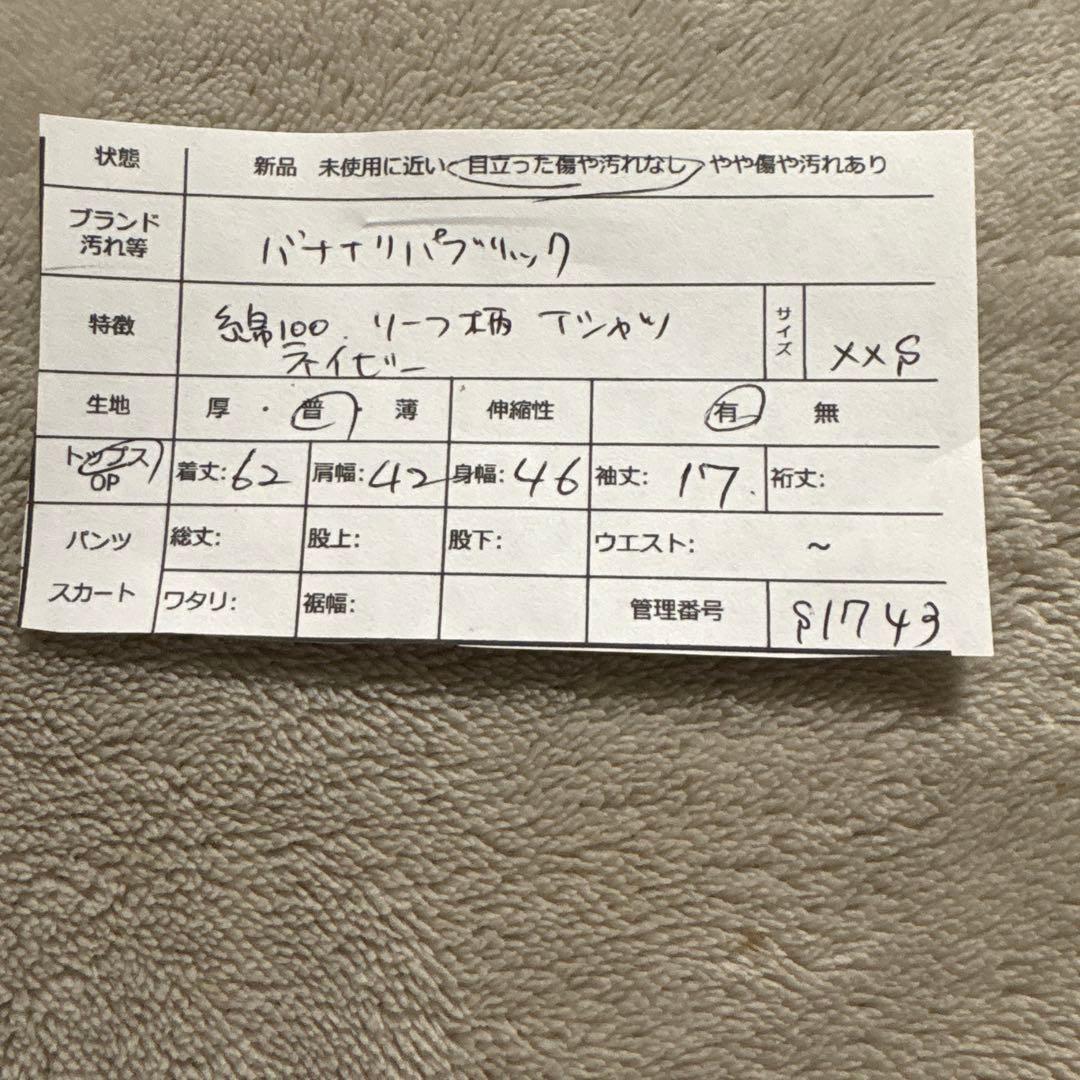 状態 新品 未使用に近い 目立った傷や汚れなし やや傷や汚れあり
ブランド
汚れ等
バナナリパブリック
特徴
綿100. リーフ柄 Tシャツ
ネイビー
サイズ
XXS
生地 厚・普・薄 伸縮性 有 無
トップス
OP
着丈:62 肩幅:42 身幅:46 袖丈:17. 裄丈:
パンツ
スカート
総丈: 股上: 股下: ウエスト: ~
ワタリ: 裾幅: 管理番号 S1743